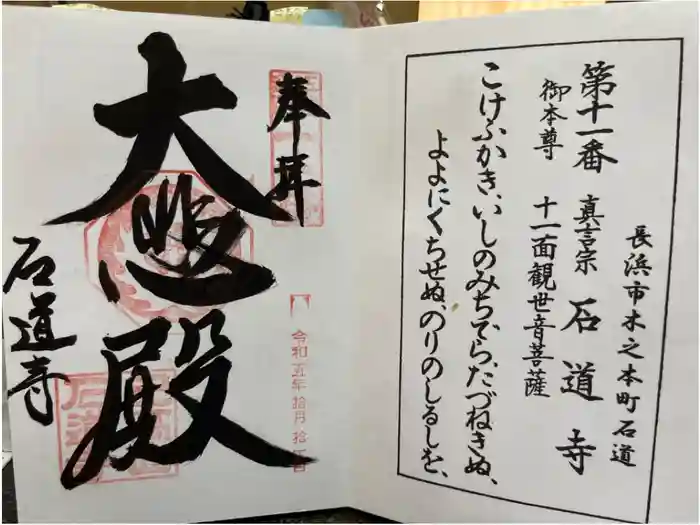 長浜市木之本町石道
第十一番 真言宗 石道寺
御本尊 十一面観世音菩薩
こけふかき、いしのみちでら、たづねきぬ、
よよにくちせぬ、のりのしるしを、
奉拝
令和五年拾月拾
大悲殿
石道寺